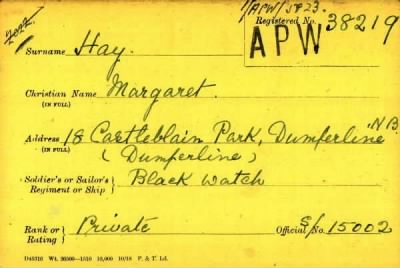 2022.
1/APW/5823.
Registered No. 38219
APW
Surname Hay.
Christian Name Margaret.
(IN FULL)
Address 18 Castleblain Park, Dumferline N.B.
(IN FULL) (Dumferline)
Soldier's or Sailor's Black Watch
Regiment or Ship
Rank or Private Official No. S/15002
Rating
D45316 Wt. 26500—1510 10,000 10/18 P. & T. Ld.